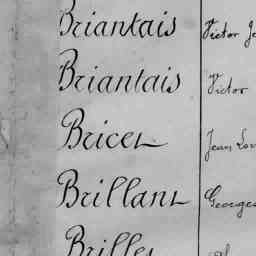 Briantais Victor
Briantais Victor
Bricet Jean
Brillant Georges
Brilles